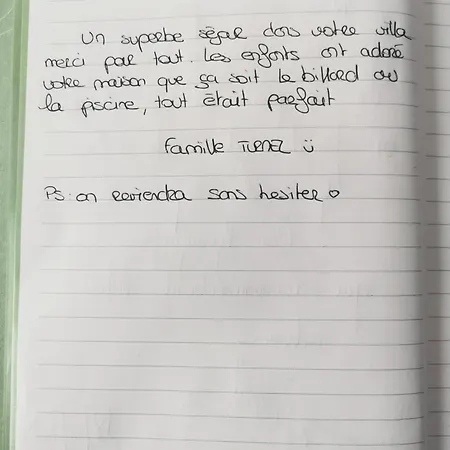 Un superbe séjar dans votre villa
merci pour tout. Les enfants ont adoré
votre maison que sa soit le billard ou
la piscine, tout était parfait
Famille TURNEL ☺
PS: on reviendra sans hesiter ♡